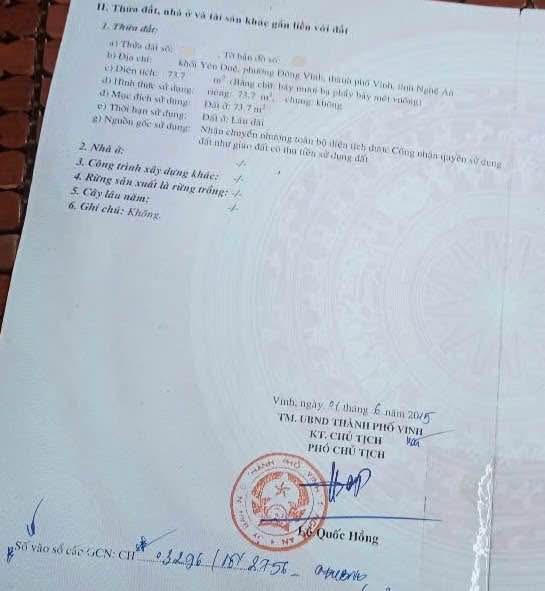 II. Thửa đất, nhà ở và tài sản khác gắn liền với đất
1. Thửa đất:
a) Thửa đất số: Tờ bản đồ số:
b) Địa chỉ: khối Yên Duệ, phường Đông Vĩnh, thành phố Vinh, tỉnh Nghệ An
c) Diện tích: 73.7 m² (Bằng chữ: bảy mươi ba phẩy bảy mét vuông)
d) Hình thức sử dụng: riêng: 73.7 m², chung: không
đ) Mục đích sử dụng: Đất ở: 73.7 m²
e) Thời hạn sử dụng: Đất ở: Lâu dài
g) Nguồn gốc sử dụng: Nhận chuyển nhượng toàn bộ diện tích được Công nhận quyền sử dụng
đất như giao đất có thu tiền sử dụng đất
2. Nhà ở: -/-
3. Công trình xây dựng khác: -/-
4. Rừng sản xuất là rừng trồng: -/-
5. Cây lâu năm: -/-
6. Ghi chú: Không.
Vinh, ngày 01 tháng 6 năm 2015
TM. UBND THÀNH PHỐ VINH
KT. CHỦ TỊCH
PHÓ CHỦ TỊCH
THÀNH PHỐ VINH
Lê Quốc Hồng
Số vào sổ cấp GCN: CH 03296